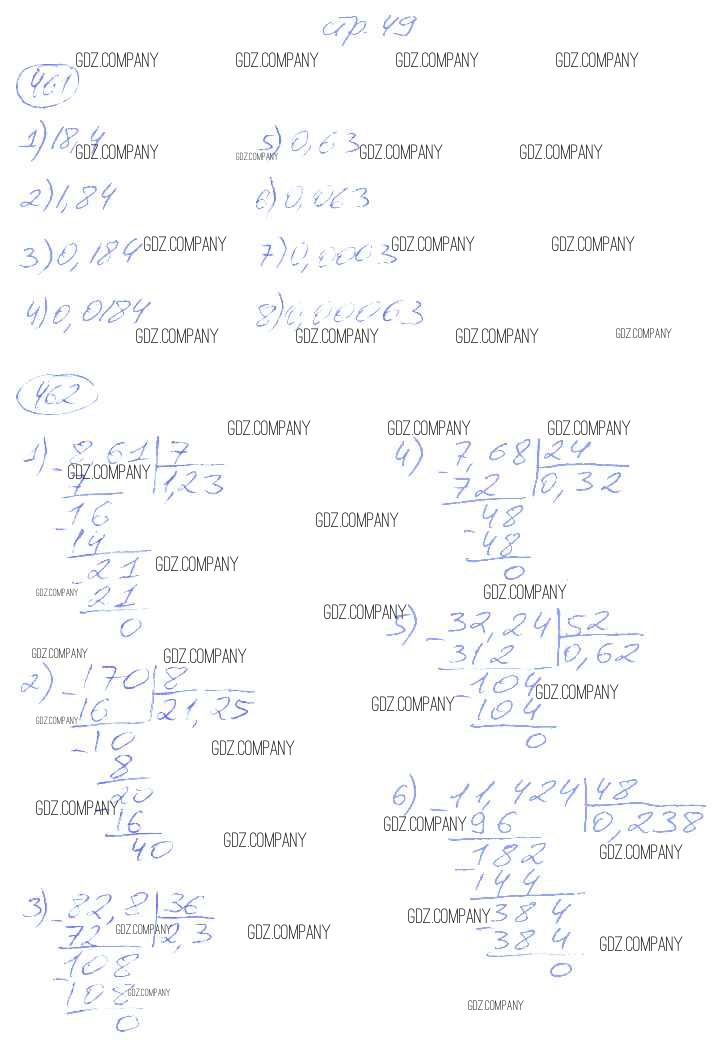 стр. 49
GDZ.COMPANY GDZ.COMPANY GDZ.COMPANY GDZ.COMPANY
461
1) 18,4 GDZ.COMPANY 5) 0,63 GDZ.COMPANY GDZ.COMPANY GDZ.COMPANY
2) 1,84 6) 0,063
3) 0,184 GDZ.COMPANY 7) 0,0003 GDZ.COMPANY GDZ.COMPANY
4) 0,0184 8) 0,00063
GDZ.COMPANY GDZ.COMPANY GDZ.COMPANY GDZ.COMPANY
462
GDZ.COMPANY GDZ.COMPANY GDZ.COMPANY
1) - 8,61 | 7
GDZ.COMPANY
7 | 1,23
- 16
14
- 21 GDZ.COMPANY
21 GDZ.COMPANY
0
GDZ.COMPANY GDZ.COMPANY
2) - 170 | 8
16 | 21,25
GDZ.COMPANY
- 10 GDZ.COMPANY
8
- 20
GDZ.COMPANY
16
40 GDZ.COMPANY
3) - 82,8 | 36
72 | 2,3
GDZ.COMPANY GDZ.COMPANY
- 108
108 GDZ.COMPANY
0
4) - 7,68 | 24
72 | 0,32
- 48
GDZ.COMPANY
48
0
GDZ.COMPANY
GDZ.COMPANY
5) - 32,24 | 52
312 | 0,62
- 104 GDZ.COMPANY
GDZ.COMPANY
104
0
6) - 11,424 | 48
GDZ.COMPANY
96 | 0,238
- 182 GDZ.COMPANY
144
GDZ.COMPANY
- 384
384 GDZ.COMPANY
0
GDZ.COMPANY